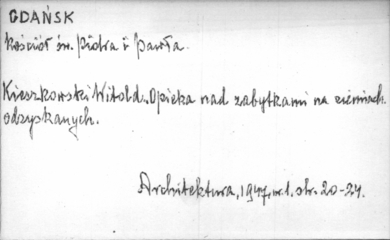 GDAŃSK
Kościół św. Piotra i Pawła.
Kieszkowski Witold. Opieka nad zabytkami na ziemiach
odzyskanych.
Architektura, 1947, nr. 1. str. 20-24.